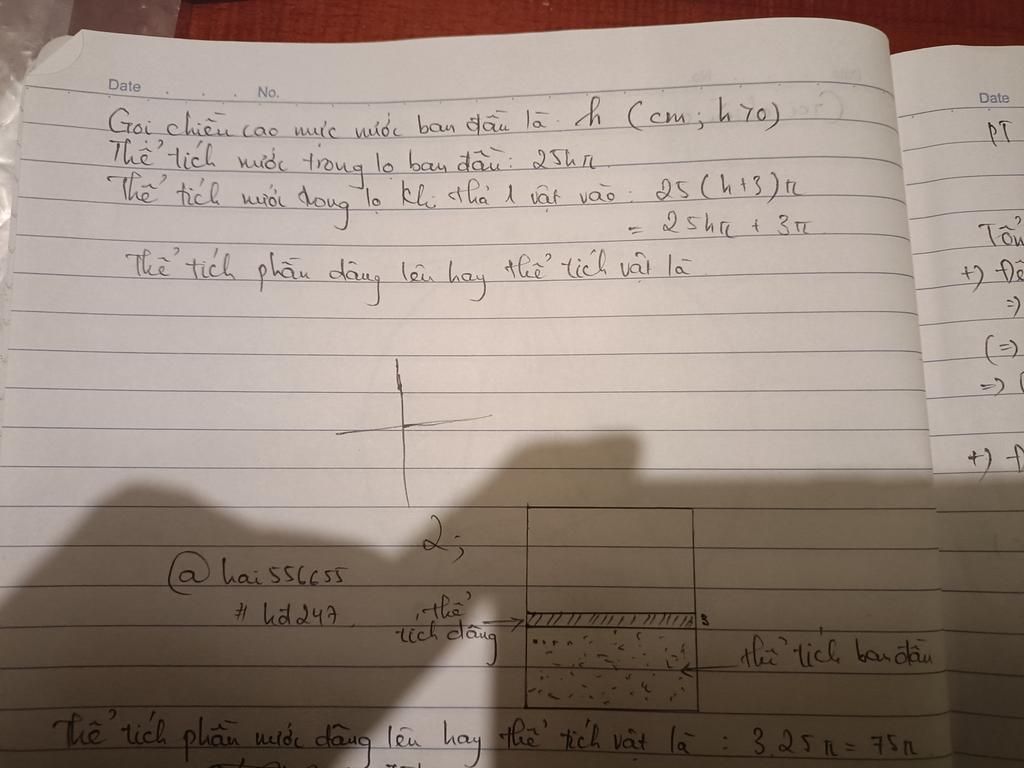 Date No.
Gọi chiều cao mực nước ban đầu là h (cm; h>0)
Thể tích nước trong lọ ban đầu: 25hπ
Thể tích nước trong lọ khi thả 1 vật vào: 25(h+3)π
= 25hπ + 3π
Thể tích phần dâng lên hay thể tích vật là
2;
@hai556655
# hd247
thể
tích dâng
3
thể tích ban đầu
Thể tích phần nước dâng lên hay thể tích vật là : 3.25π = 75π
Date
PT
+)
=>
(=>
=>
+)